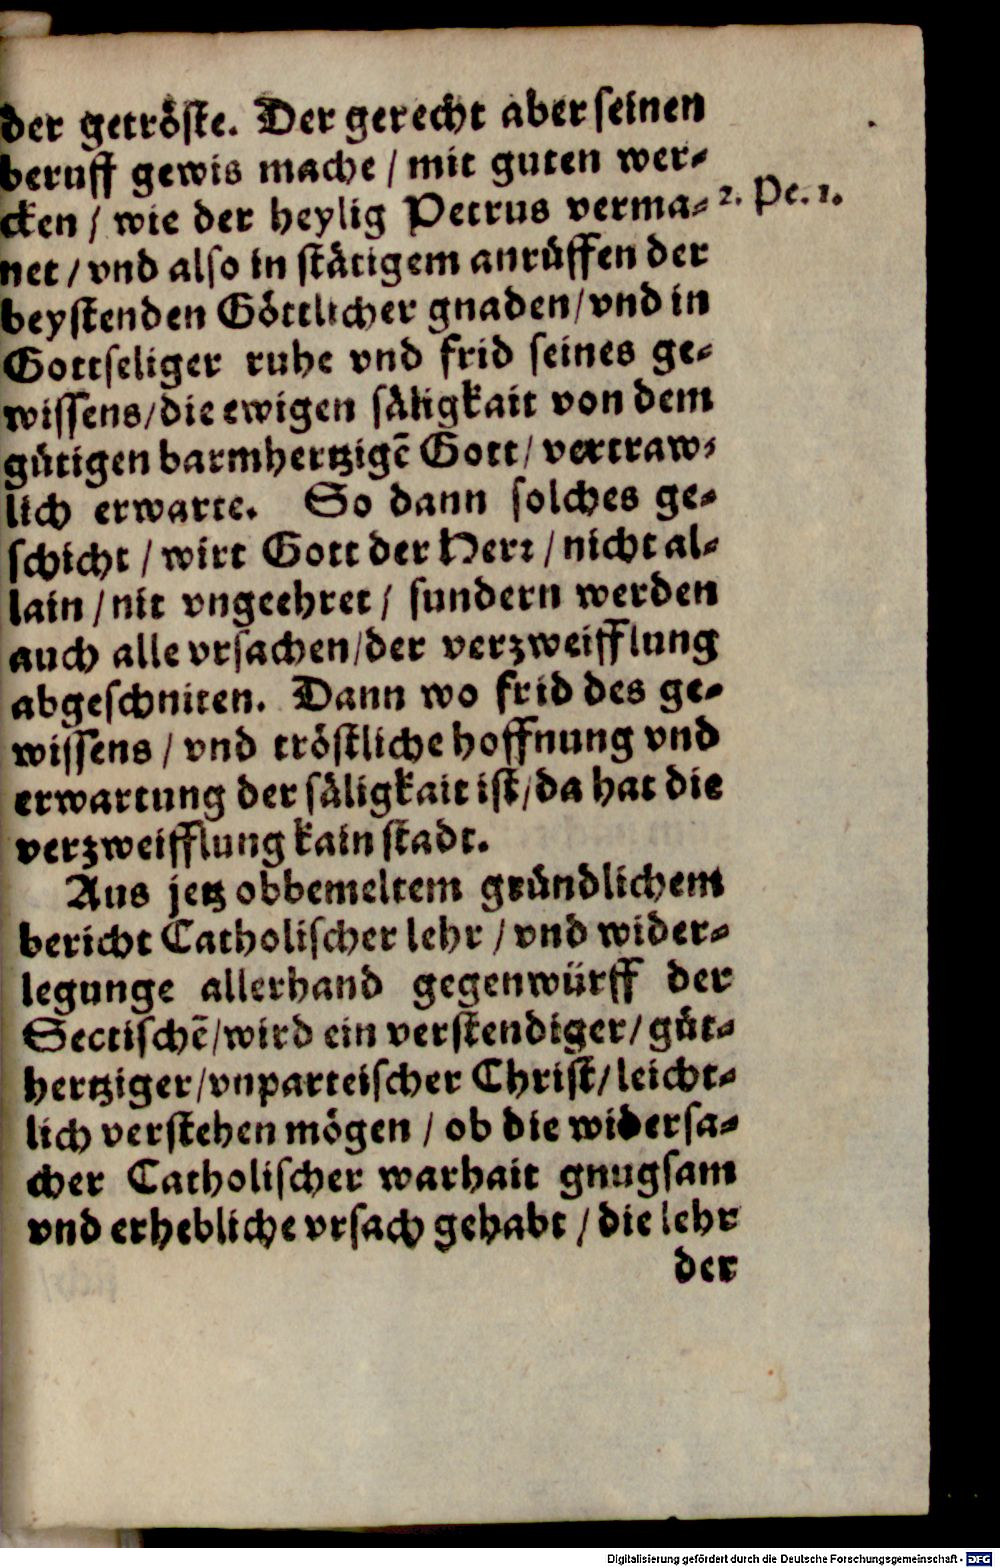 der getröste. Der gerecht aber seinen
beruff gewis mache / mit guten wer-
cken / wie der heylig Petrus verma-
2. Pe. 1.
net / vnd also in stätigem anrüffen der
beystenden Göttlicher gnaden / vnd in
Gottseliger ruhe vnd frid seines ge-
wissens / die ewigen säligkait von dem
gütigen barmhertzigẽ Gott / vertraw-
lich erwarte. So dann solches ge-
schicht / wirt Gott der Herr / nicht al-
lain / nit vngeehret / sundern werden
auch alle vrsachen / der verzweifflung
abgeschniten. Dann wo frid des ge-
wissens / vnd tröstliche hoffnung vnd
erwartung der säligkait ist / da hat die
verzweifflung kain stadt.
Aus jetz obbemeltem gründlichem
bericht Catholischer lehr / vnd wider-
legunge allerhand gegenwürff der
Sectischẽ / wird ein verstendiger / güt-
hertziger / vnparteischer Christ / leicht-
lich verstehen mögen / ob die widersa-
cher Catholischer warhait gnugsam
vnd erhebliche vrsach gehabt / die lehr
der
Digitalisierung gefördert durch die Deutsche Forschungsgemeinschaft - DFG